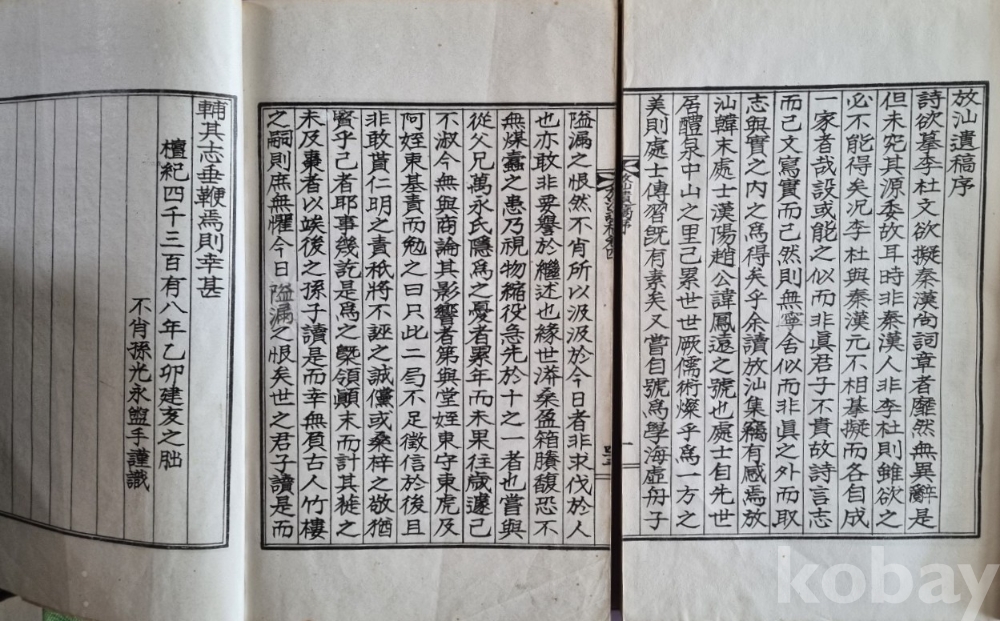 放汕遺稿序
詩欲摹李杜文欲擬秦漢尙詞章者靡然無異辭是
但未究其源委故耳時非秦漢人非李杜則雖欲之
必不能得矣況李杜與秦漢元不相摹擬而各自成
一家者哉設或能之似而非眞君子不貴故詩言志
而已文寫實而己然則無寧舍似而非眞之外而取
志與實之內之爲得矣乎余讀放汕集竊有感焉放
汕韓末處士漢陽趙公諱鳳遠之號也處士自先世
居醴泉中山之里己累世世厥儒術燦乎爲一方之
美則處士傳習旣有素矣又嘗自號爲學海虛舟子
一
隘漏之恨然不肖所以汲汲於今日者非求伐於人
也亦敢非要譽於繼述也緣世漭桑盈箱賸馥恐不
無煤蠹之患乃視物縮役急先於十之一者也嘗與
從父兄萬永氏隱爲之憂者累年而未果往歲遽己
不淑今無與商論其影響者第與堂姪東守東虎及
阿姪東基責而勉之曰只此二局不足徵信於後且
非敢貰仁明之責祇將不誣之誠儻或桑梓之敬猶
賢乎己者耶事幾訖是爲之槩領顚末而計其蓰之
未及棗者以竢後之孫子讀是而幸無頁古人竹樓
之嗣則庶無懼今日隘漏之恨矣世之君子讀是而
輔其志垂鞭焉則幸甚
檀紀四千三百有八年乙卯建亥之朏
不肖孫光永盥手謹識
kobay